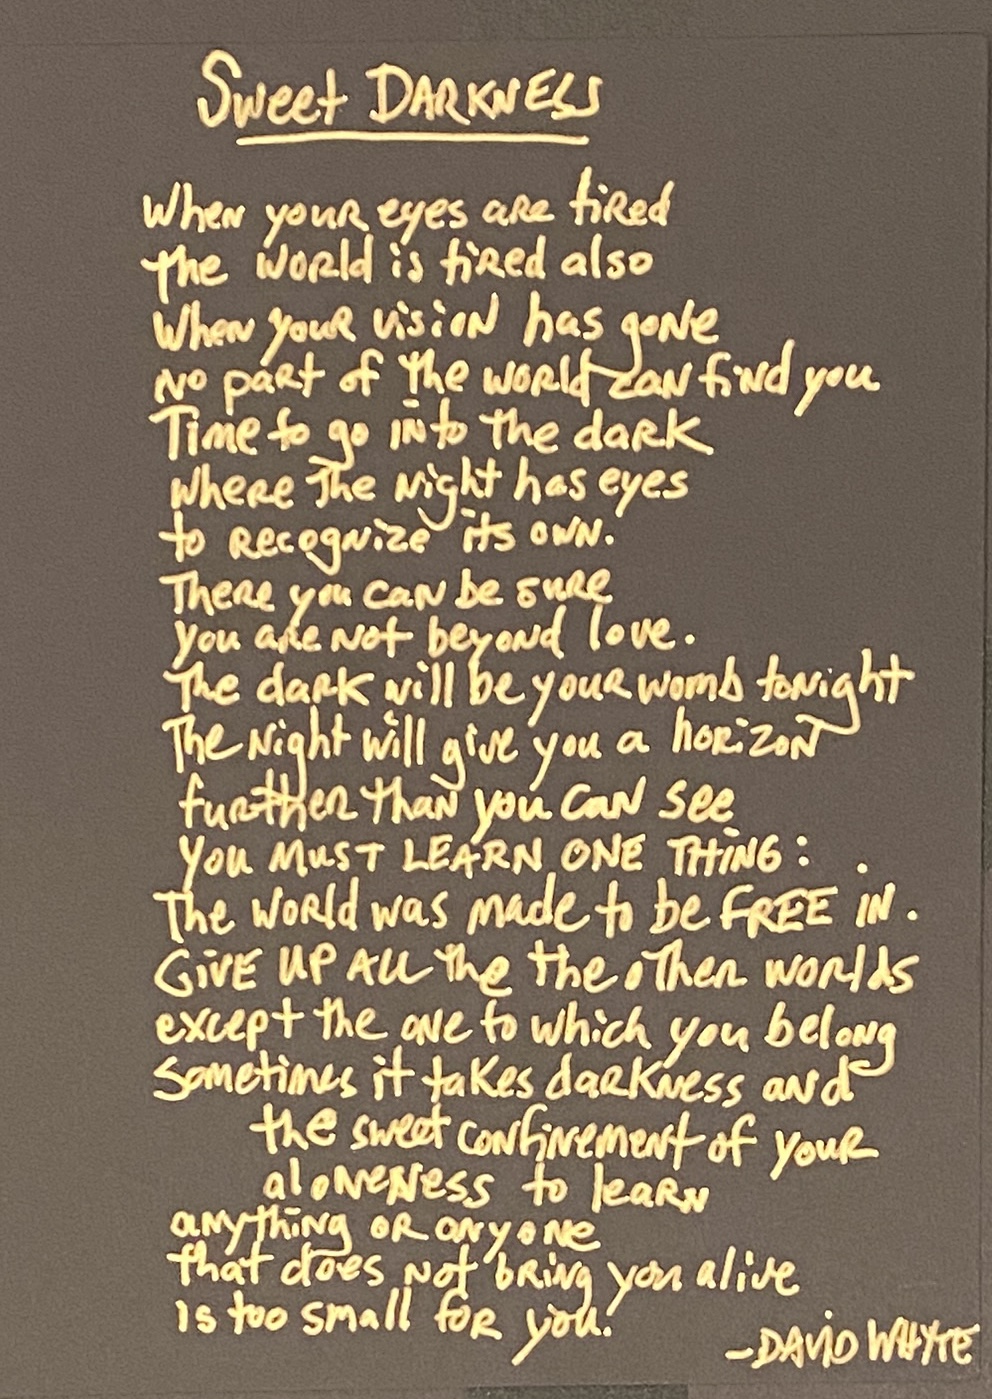 Sweet DARKNESS
When your eyes are tired
the world is tired also
When your vision has gone
No part of the world can find you
Time to go into the dark
where the night has eyes
to recognize its own.
There you can be sure
you are not beyond love.
The dark will be your womb tonight
The Night will give you a horizon
further than you can see
YOU MUST LEARN ONE THING:
The world was made to be FREE IN.
GIVE UP ALL the the other worlds
except the one to which you belong
Sometimes it takes darkness and
the sweet confinement of your
aloneness to learn
anything or anyone
that does not bring you alive
is too small for you.
-DAVID WHYTE